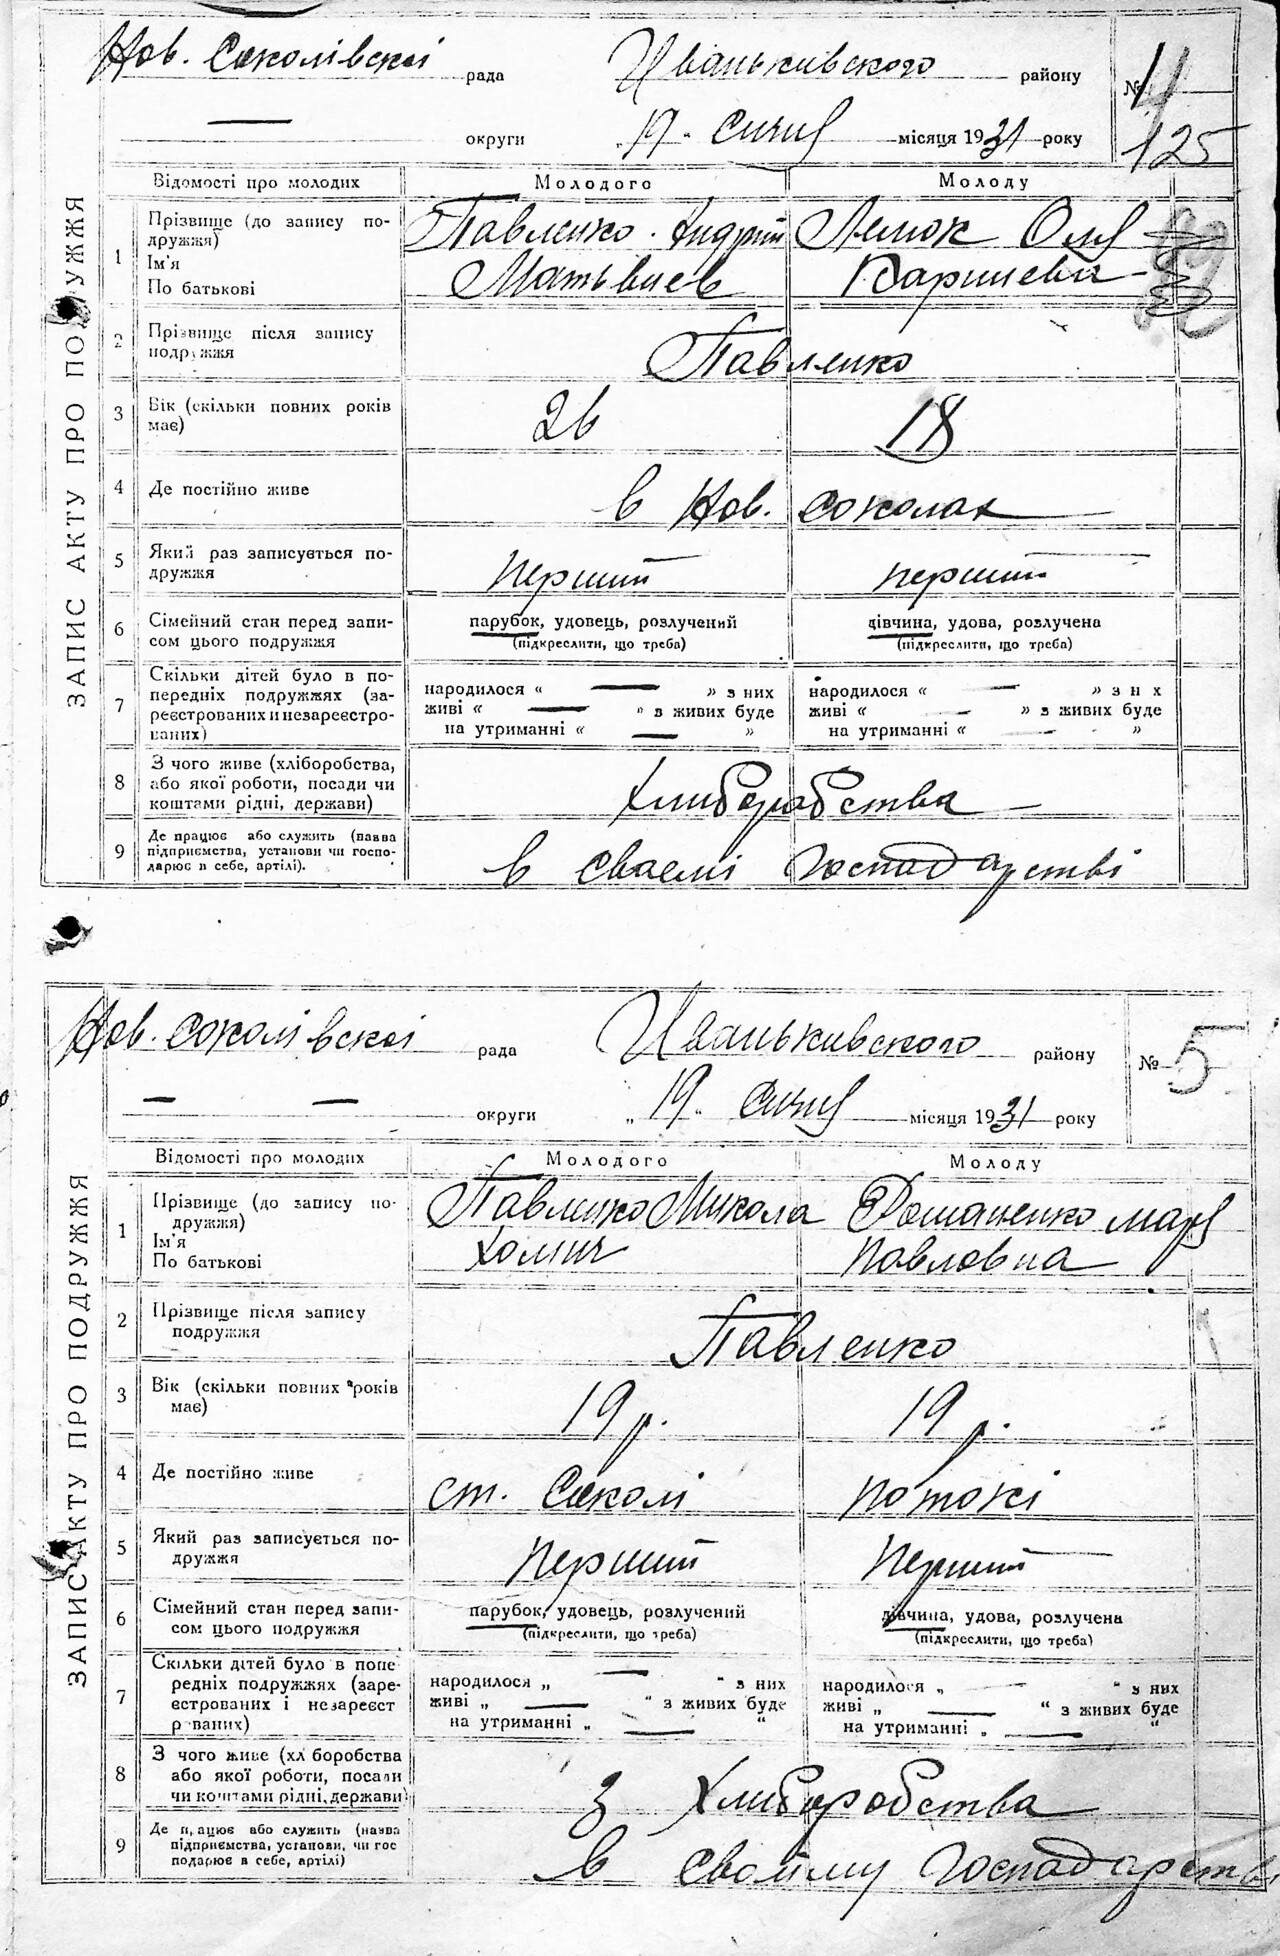 Нов. Соколівскої рада Иваньковского району № 4
— округи „ 19 „ Січня місяця 1931 року 125
ЗАПИС АКТУ ПРО ПО УЖЖЯ
Відомості про молодих Молодого Молоду
1 Прізвище (до запису по-
дружжя)
Ім'я
По батькові
Павленко. Андрій Лемок Оля
Матьвиев
2 Прізвище після запису
подружжя
Павленко
3 Вік (скільки повних років
має)
26 18
4 Де постійно живе в Нов. соколах
5 Який раз записується по-
дружжя
перший перший
6 Сімейний стан перед запи-
сом цього подружжя
парубок, удовець, розлучений дівчина, удова, розлучена
(підкреслити, що треба) (підкреслити, що треба)
7 Скільки дітей було в по-
передніх подружжях (за-
реєстрованих и незареєстро-
ваних)
народилося « — » з них народилося « — » з н х
живі « — » з живих буде живі « — » з живих буде
на утриманні « — » на утриманні « — »
8 З чого живе (хліборобства,
або якої роботи, посади чи
коштами рідні, держави)
Хлиборабства
9 Де працює або служить (назва
підприємства, установи чи госпо-
дарює в себе, артілі).
в сваємі Господарстві
Нов. соколівскої рада Иваньковского району № 5
— — округи „ 19 „ Січня місяця 1931 року
ЗАПИС АКТУ ПРО ПОДРУЖЖЯ
Відомості про молодих Молодого Молоду
1 Прізвище (до запису по-
дружжя)
Ім'я
По батькові
Павленко Микола Доманенко маря
Хомич Павловна
2 Прізвище після запису
подружжя
Павленко
3 Вік (скільки повних років
має)
19 р. 19 р.
4 Де постійно живе ст. Соколі потокі
5 Який раз записується по-
дружжя
перший перший
6 Сімейний стан перед запи-
сом цього подружжя
парубок, удовець, розлучений дівчина, удова, розлучена
(підкреслити, що треба) (підкреслити, що треба)
7 Скільки дітей було в попе
редніх подружжях (заре-
єстрованих і незареєст
р ваних)
народилося „ — “ з них народилося „ — “ з них
живі „ — “ з живих буде живі „ — “ з живих буде
на утриманні „ — “ на утриманні „ — “
8 З чого живе (хл боробства
або якої роботи, посади
чи коштами рідні, держави)
з Хлиборобства
9 Де п ацює або служить (назва
підприємства, установи, чи гос
подарює в себе, артілі)
в своїму Господарстві